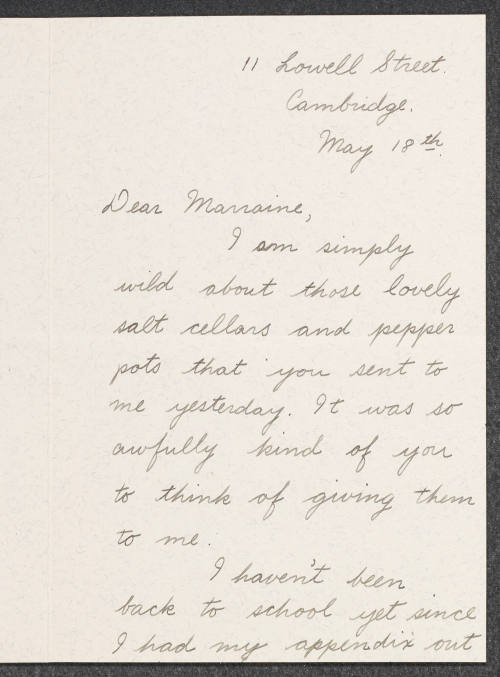 11 Lowell Street.
Cambridge.
May 18th.
Dear Marraine,
I am simply
wild about those lovely
salt cellars and pepper
pots that you sent to
me yesterday. It was so
awfully kind of you
to think of giving them
to me.
I haven't been
back to school yet since
I had my appendix out